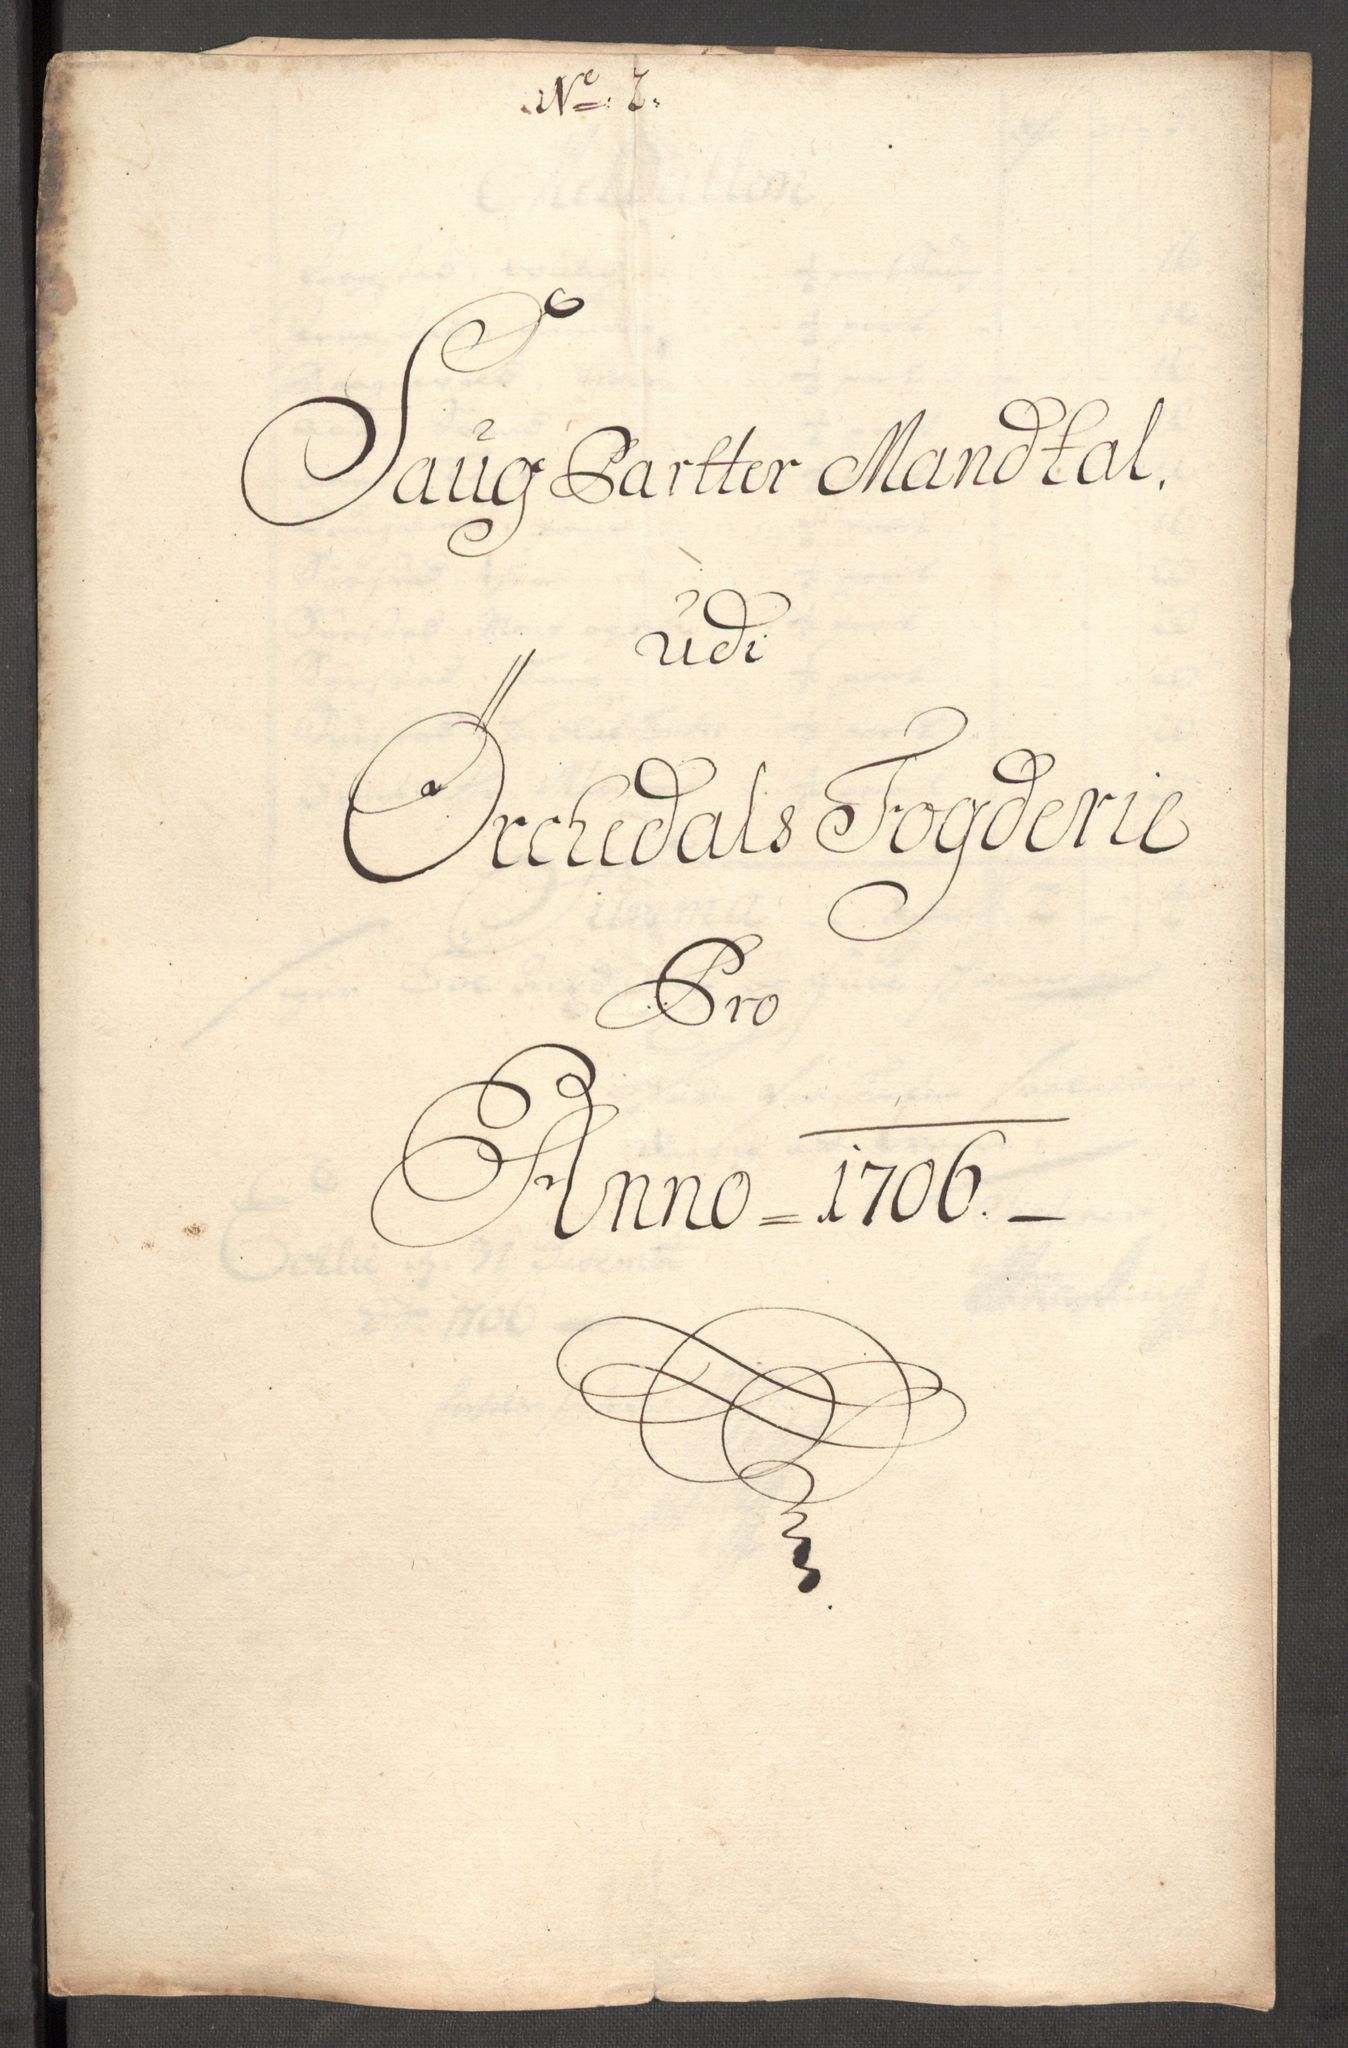 No: 7.
Saug Partter Mandtal.
udi
Örchedals Fogderie
Pro
Anno = 1706. —